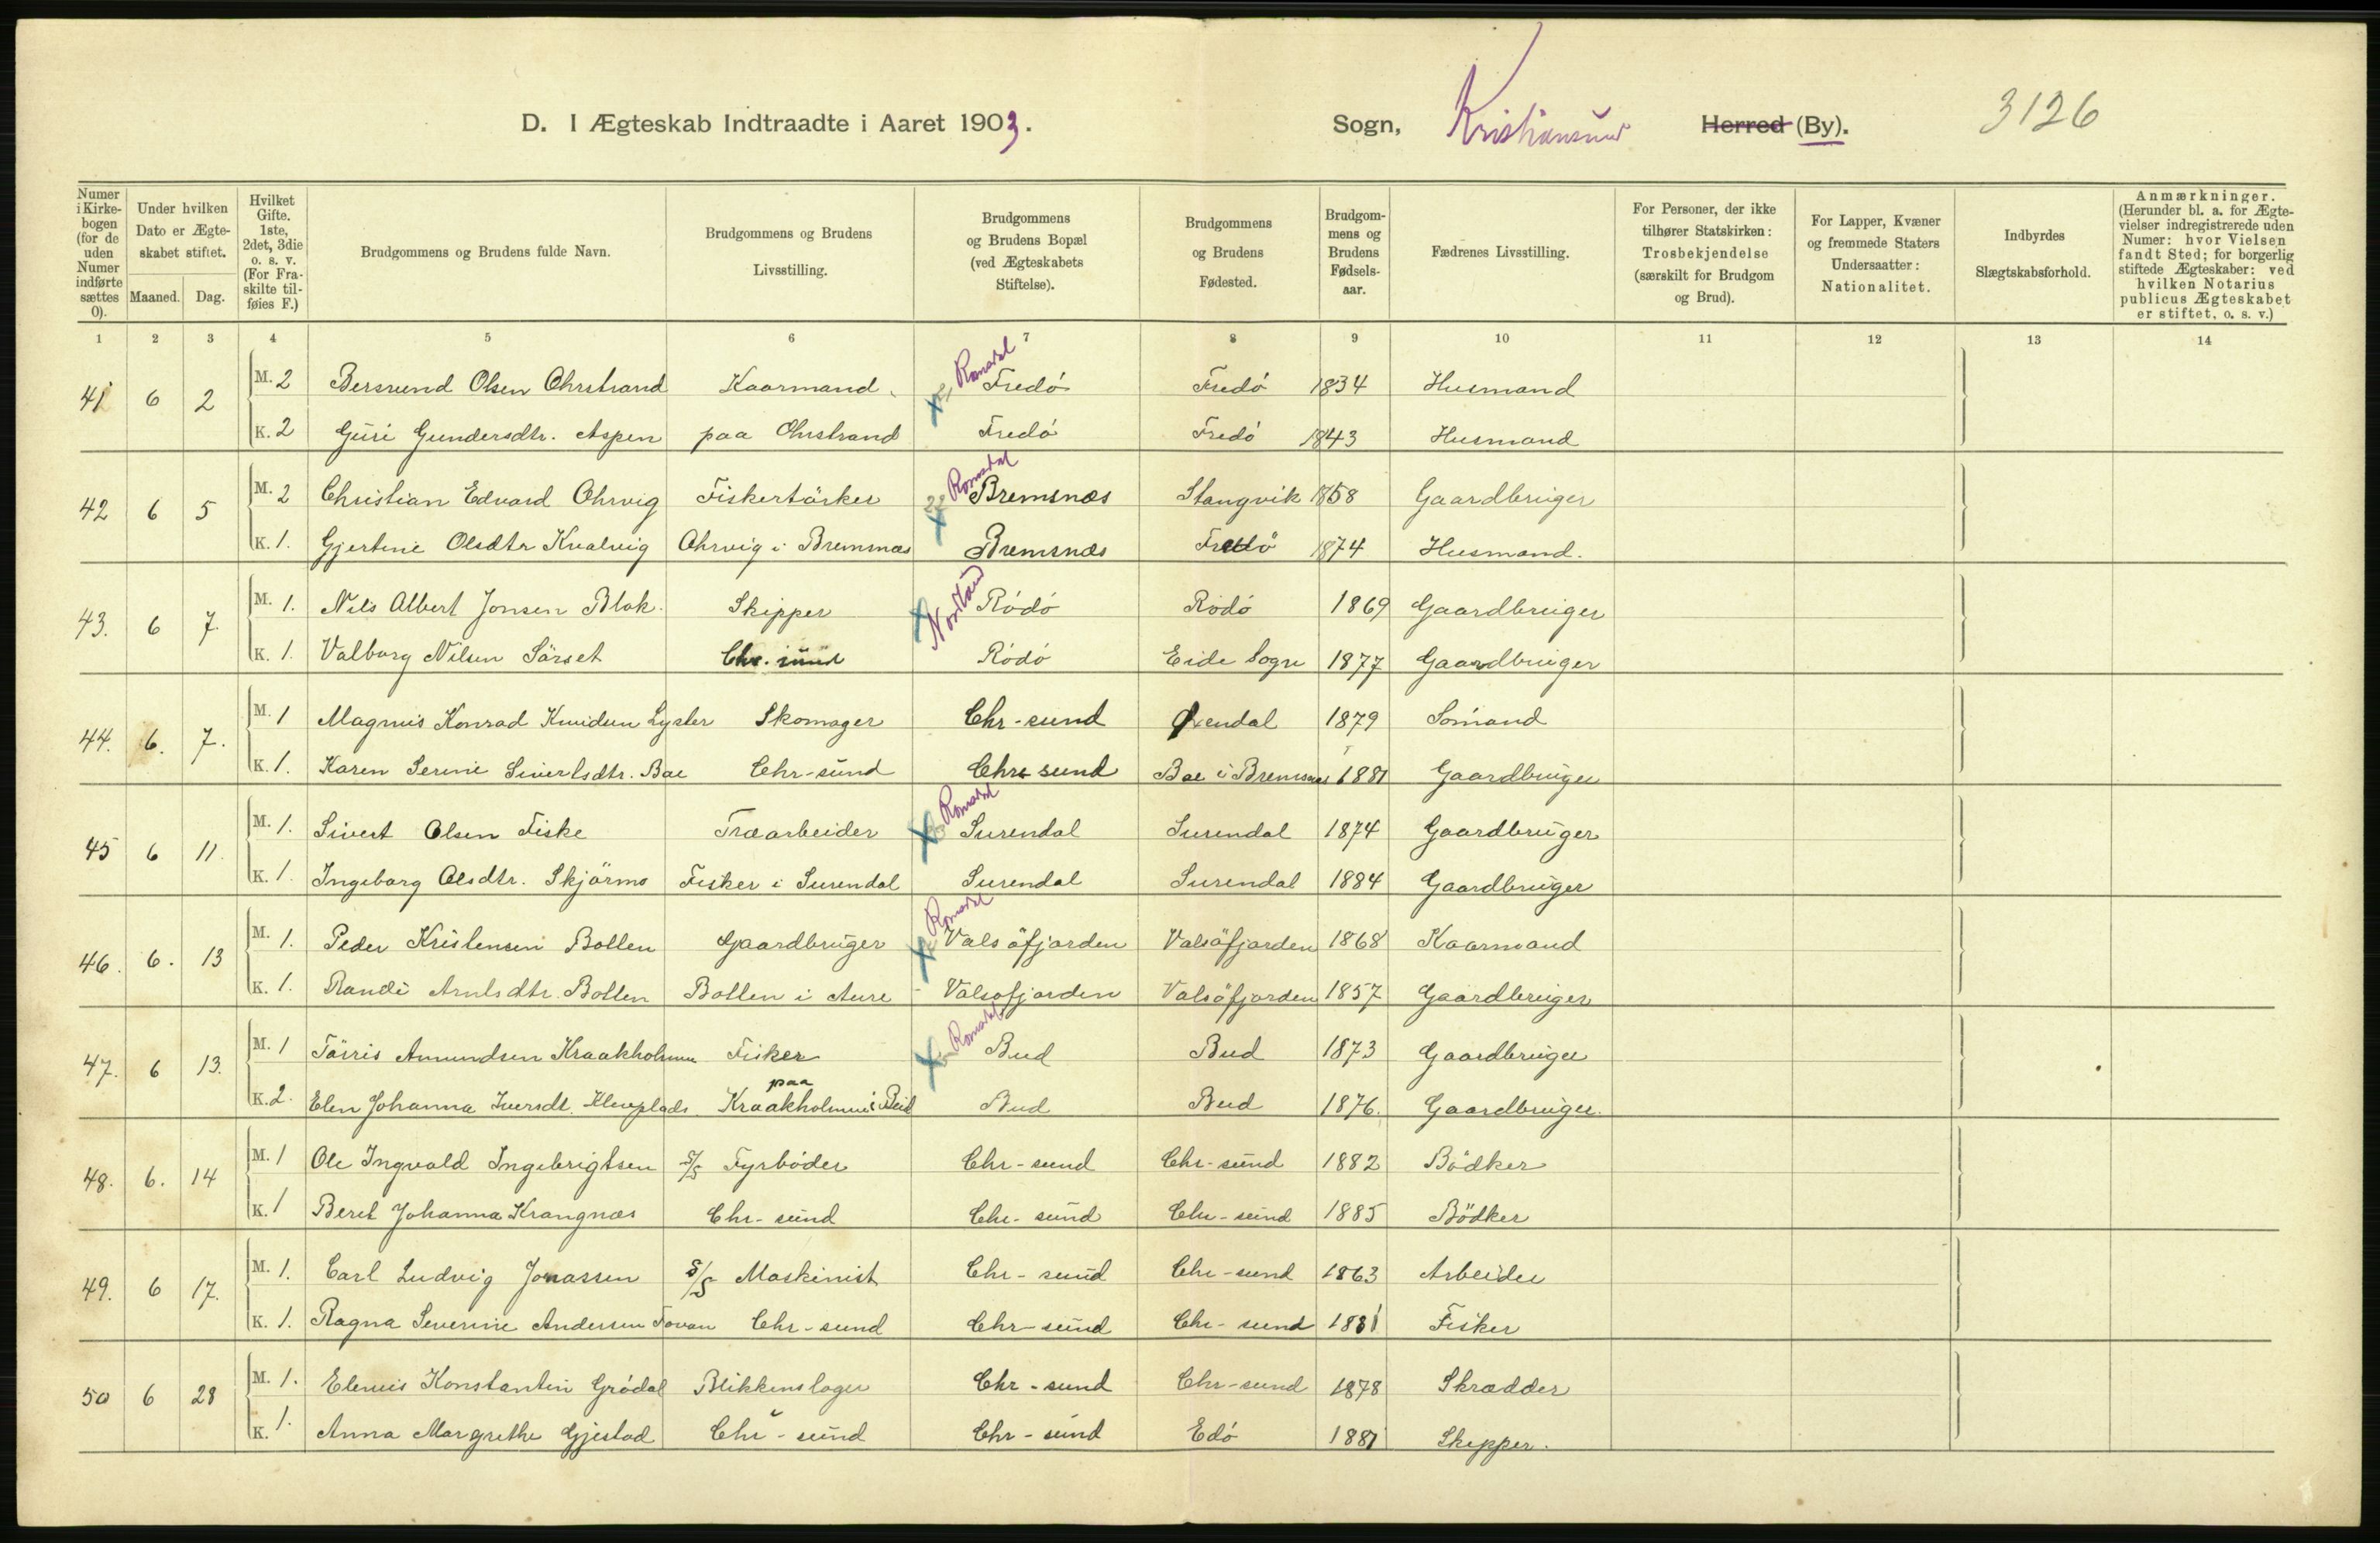 D. I Ægteskab Indtraadte i Aaret 1903. Sogn, Kristiansund Herred (By). 3126
Numer i Kirkebogen (for de uden Numer indførte sættes 0).
Under hvilken Dato er Ægteskabet stiftet.
Maaned. Dag.
Hvilket Gifte. 1ste, 2det, 3die o. s. v. (For Fraskilte tilføies F.)
Brudgommens og Brudens fulde Navn.
Brudgommens og Brudens Livsstilling.
Brudgommens og Brudens Bopæl (ved Ægteskabets Stiftelse).
Brudgommens og Brudens Fødested.
Brudgommens og Brudens Fødselsaar.
Fædrenes Livsstilling.
For Personer, der ikke tilhører Statskirken: Trosbekjendelse (særskilt for Brudgom og Brud).
For Lapper, Kvæner og fremmede Staters Undersaatter: Nationalitet.
Indbyrdes Slægtskabsforhold.
Anmærkninger. (Herunder bl. a. for Ægtevielser indregistrerede uden Numer: hvor Vielsen fandt Sted; for borgerlig stiftede Ægteskaber: ved hvilken Notarius publicus Ægteskabet er stiftet, o. s. v.)
1 2 3 4 5 6 7 8 9 10 11 12 13 14
Romsdal
41 6 2 M. 2 Bersvend Olsen Ohrstrand Kaarmand Fredö Fredö 1834 Husmand
K. 2 Guri Gundersdtr. Aspen paa Ohrstrand Fredö Fredö 1843 Husmand
Romsdal
42 6 5 M. 2 Christian Edvard Ohrvig Fiskertörker 22 Bremsnæs Stangvik 1858 Gaardbruger
K. 1. Gjertine Olsdtr Kvalvig Ohrvig i Bremsnæs Bremsnæs Fredö 1874 Husmand.
Nordland
43. 6 7. M. 1. Nils Albert Jonsen Blok. Skipper Rödö Rödö 1869 Gaardbruger
K. 1. Valborg Nilsen Sörset Chr. sund Rödö Eide Sogn 1877 Gaardbruger
44. 6. 7. M. 1 Magnus Konrad Knudsen Lyster Skomager Chr-sund Öxendal 1879 Sömand
K. 1. Karen Serine Sivertsdtr. Bae Chr-sund Chr-sund Bae i Bremsnæs 1881 Gaardbruger
Romsdal
45 6 11. M. 1. Sivert Olsen Fiske Træarbeider Surendal Surendal 1874 Gaardbruger
K. 1. Ingeborg Olsdtr. Skjörmo Fisker i Surendal Surendal Surendal 1884 Gaardbruger
Romsdal
46. 6. 13 M. 1. Peder Kristensen Bollen Gaardbruger Valsöfjorden Valsöfjorden 1868 Kaarmand
K. 1. Randi Arntsdtr. Bollen Bollen i Aure Valsöfjorden Valsöfjorden 1857 Gaardbruger
Romsdal
47. 6 13. M. 1 Törris Amundsen Kraakholmen Fisker Bud Bud 1873 Gaardbruger
K. 2. Elen Johanna Iversdt. paa Kraakholmen i Bud Bud Bud 1876. Gaardbruger.
48. 6. 14 M. 1 Ole Ingvald Ingebrigtsen S/S Fyrböder Chr-sund Chr-sund 1882 Bödker
K. 1 Beret Johanna Krangnæs Chr-sund Chr-sund Chr-sund 1885 Bödker
49. 6 17. M. 1. Carl Ludvig Jonassen S/S Maskinist Chr-sund Chr-sund 1863 Arbeider
K. 1. Ragna Severine Andersen Tovan Chr-sund Chr-sund Chr-sund 1881 Fisker
50 6 28 M. 1. Elenus Konstantin Grödal Blikkenslager Chr-sund Chr-sund 1878 Skrædder
K. 1. Anna Margrethe Gjestad Chr-sund Chr-sund Edö 1881 Skipper.